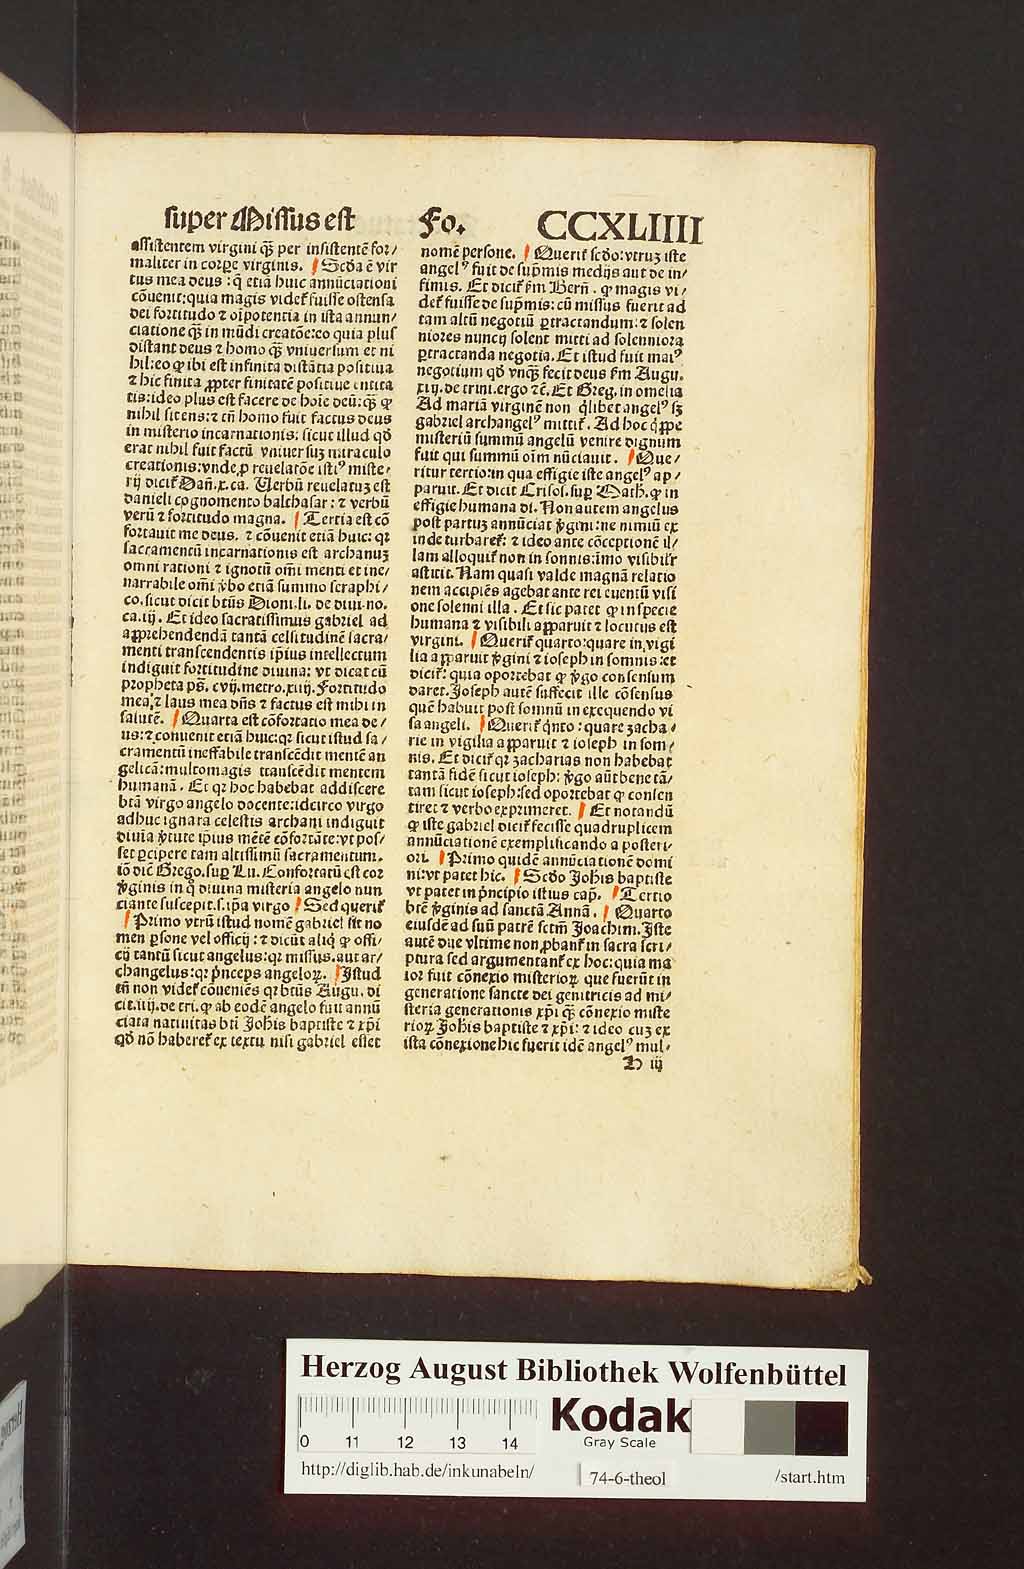 super Missus est Fo. CCXLIIII
assistentem virgini q̃ꝫ per insistentē for/
maliter in corꝑe virginis. Scd̃a ē vir
tus mea deus : q̃ etiā huic annūciationi
cōuenit:quia magis videt᷑ fuisse ostensa
dei fortitudo ⁊ oĩpotentia in ista annun/
ciatione q̃ꝫ in mūdi creatōe:eo quia plus
distant deus ⁊ homo q̃ꝫ vniuersum et ni
hil:eo ꝙ ibi est infinita distātia positiua
⁊ hic finita ꝓpter finitatē positiue entita
tis:ideo plus est facere de hoĩe deū:q̃ꝫ ꝙ
nihil sit ens:⁊ tñ homo fuit factus deus
in misterio incarnationis: sicut illud qđ
erat nihil fuit factū vniuersuꝫ miraculo
creationis:vnde ꝓ reuelatōe istiꝰ miste/
rij dicit᷑ Dañ.x.ca. Uerbū reuelatuꝫ est
danieli cognomento balthasar : ⁊ verbū
verū ⁊ fortitudo magna. Tertia est cō
fortauit me deus. ⁊ cōuenit etiā huic: qꝛ
sacramentū incarnationis est archanuꝫ
omni rationi ⁊ ignotū om̃i menti et ine/
narrabile om̃i v̓bo etiā summo seraphi/
co.sicut dicit btũs Dioni.li. de diui.no.
ca.iij. Et ideo sacratissimus gabriel ad
apprehendendā tantā celsitudinē sacra/
menti transcendentis ip̃ius intellectum
indiguit fortitudine diuina: vt dicat cū
propheta pš. cvij.metro.xiiij. Fortitudo
mea ⁊ laus mea dñs ⁊ factus est mihi in
salutē. Quarta est cōfortatio mea de/
us:⁊ conuenit etiā huic:qꝛ sicut istud sa/
cramentū ineffabile transcēdit mentē an
gelicā:multomagis transcēdit mentem
humanā. Et qꝛ hoc habebat addiscere
btā virgo angelo docente:idcirco virgo
adhuc ignara celestis archani indiguit
diuīa v̓tute ip̃ius mētē cōfortāte:vt pos/
set ꝑcipere tam altissimū sacramentum.
iō dic̃ Grego.suꝑ Lu. Confortatū est cor
v̓ginis in q̊ diuina misteria angelo nun
ciante suscepit.s.ip̃a virgo Sed querit᷑
Primo vtrū istud nomē gabriel sit no
men ꝑsone vel officij : ⁊ dicūt aliq̇ ꝙ offi/
cij tantū sicut angelus:qꝛ missus.aut ar/
changelus:qꝛ p̓nceps angeloꝝ. Istud
tñ non videt᷑ cōueniēs qꝛ btũs Augu. di
cit.iiij.de tri.ꝙ ab eodē angelo fuit annū
ciata natiuitas bti Joh̃is baptiste ⁊ xp̃i
qđ nō haberet᷑ ex textu nisi gabriel esset
nomē persone. Querit᷑ scđo:vtruꝫ iste
angelꝰ fuit de sup̃mis medijs aut de in/
fimis. Et dicit᷑ fm̃ Berñ. ꝙ magis vi/
det᷑ fuisse de sup̃mis: cū missus fuerit ad
tam altū negotiū ꝑtractandum:⁊ solen
niores nuncij solent mitti ad solenniora
ꝑtractanda negotia. Et istud fuit maiꝰ
negotium qđ vnq̃ꝫ fecit deus fm̃ Augu.
xiij.de trini.ergo ⁊c̃. Et Greg. in omelia
Ad mariā virginē non q̇libet angelꝰ sꝫ
gabriel archangelꝰ mittit᷑. Ad hoc q̇ppe
misteriū summū angelū venire dignum
fuit qui summū oĩm nūciauit. Que/
ritur tertio:in qua effigie iste angelꝰ ap/
paruit. Et dicit Crisos.suꝑ Math. ꝙ in
effigie humana di. Non autem angelus
post partuꝫ annūciat v̓gini:ne nimiū ex
inde turbaret᷑: ⁊ ideo ante cōceptionē il/
lam alloquit᷑ non in sonnis:imo visibilr̃
astitit. Nam quasi valde magnā relatio
nem accipiēs agebat ante rei euentū visi
one solenni illa. Et sic patet ꝙ in specie
humana ⁊ visibili apparuit ⁊ locutus est
virgini. Querit᷑ quarto:quare in vigi
lia apparuit v̓gini ⁊ ioseph in somnis:et
dicit᷑: quia oportebat ꝙ v̓go consensum
daret. Joseph autē suffecit ille cōsensus
quē habuit post somnū in exequendo vi
sa angeli. Querit᷑ q̇nto : quare zacha/
rie in vigilia apparuit ⁊ ioseph in som/
nis. Et dicit᷑ qꝛ zacharias non habebat
tantā fidē sicut ioseph: v̓go aūt bene tā/
tam sicut ioseph:sed oportebat ꝙ consen
tiret ⁊ verbo exprimeret. Et notandū
ꝙ iste gabriel dicit᷑ fecisse quadruplicem
annūciationē exemplificando a posteri/
ori. Primo quidē annūciationē domi
ni:vt patet hic. Scđo Joh̃is baptiste
vt patet in p̓ncipio istius cap̃. Tertio
btē v̓ginis ad sanctā Annā. Quarto
eiusdē ad suū patrē sctm̃ Joachim. Iste
autē due vltime non ꝓbant᷑ in sacra scri/
ptura sed argumentant᷑ ex hoc: quia ma
ior fuit cōnexio misterioꝝ que fuerūt in
generatione sancte dei genitricis ad mi/
steria generationis xp̃i q̃ꝫ cōnexio miste
rioꝝ Joh̃is baptiste ⁊ xp̃i: ⁊ ideo cuꝫ ex
ista cōnexione hic fuerit idē angelꝰ mul/
H iij
Herzog August Bibliothek Wolfenbüttel
Kodak
Gray Scale
0 11 12 13 14
http://diglib.hab.de/inkunabeln/
74-6-theol
/start.htm